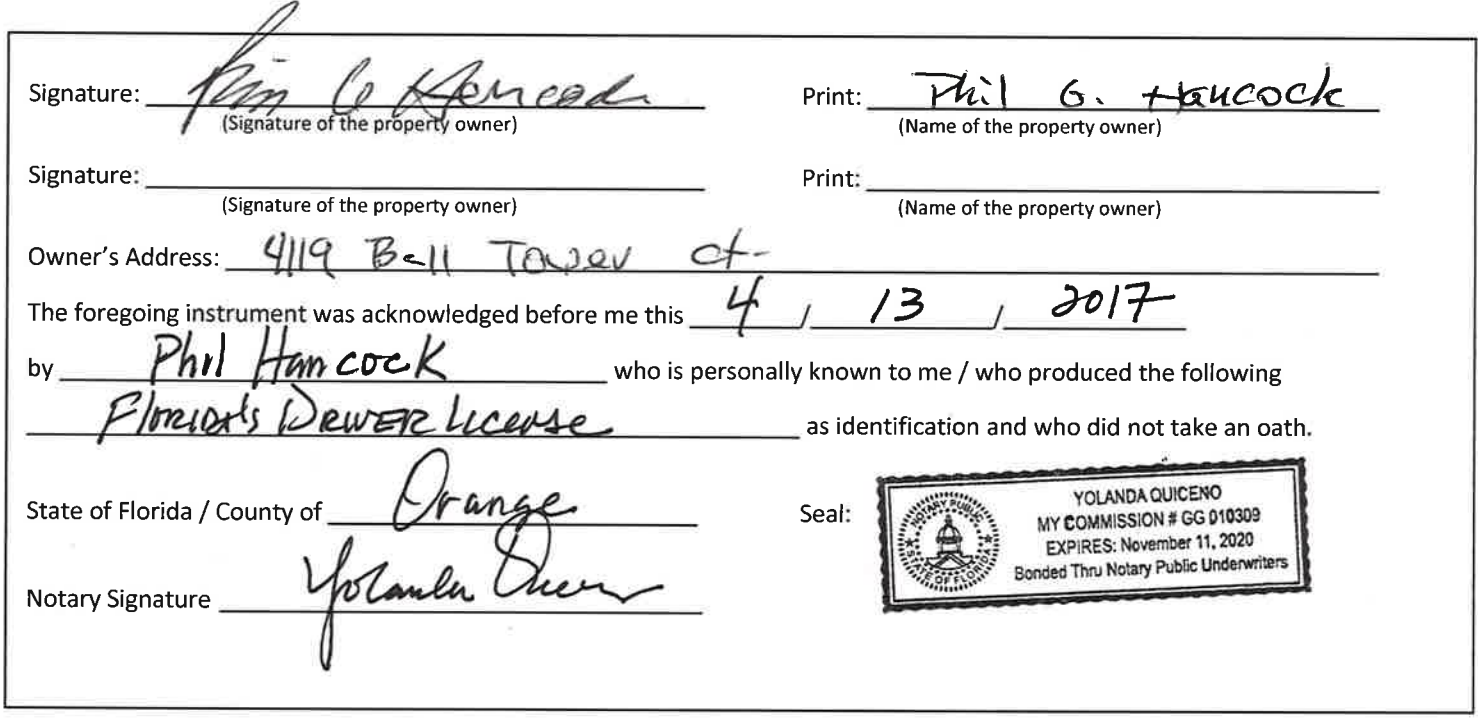 Signature: Phil G Hancock Print: Phil G. Hancock
(Signature of the property owner) (Name of the property owner)
Signature: Print:
(Signature of the property owner) (Name of the property owner)
Owner's Address: 4119 Bell Tower ct.
The foregoing instrument was acknowledged before me this 4 / 13 / 2017
by Phil Hancock who is personally known to me / who produced the following
Florida's Driver License as identification and who did not take an oath.
State of Florida / County of Orange Seal:
YOLANDA QUICENO
MY COMMISSION # GG 010309
EXPIRES: November 11, 2020
Bonded Thru Notary Public Underwriters
NOTARY PUBLIC
STATE OF FLORIDA
Notary Signature Yolanda Quiceno